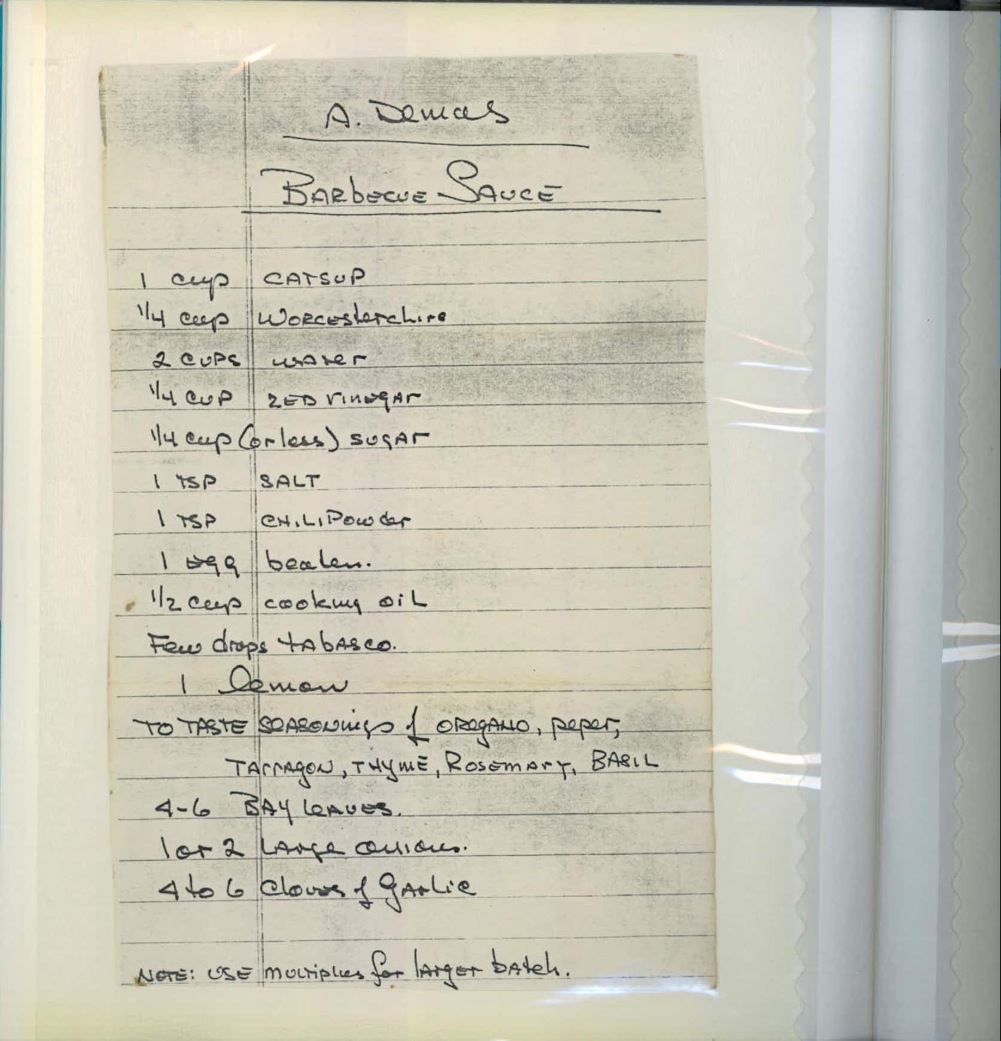 A. Demas
BARbECUE SAUCE
1 cup CATSUP
1/4 cup WORCEsterchire
2 CUPS WATER
1/4 CUP RED VINEGAR
1/4 cup (or less) SUGAR
1 TSP SALT
1 TSP CHILI Powder
1 egg beaten.
1/2 cup cooking OIL
Few drops tABASCO.
1 lemon
TO TASTE SEASONings of OREGANO, peper,
TARRAGON, THYME, ROSEMARY, BASIL
4-6 BAY LEAVES.
1 or 2 LARge onions.
4 to 6 Cloves of GARLic
NOTE: USE multiples for larger batch.